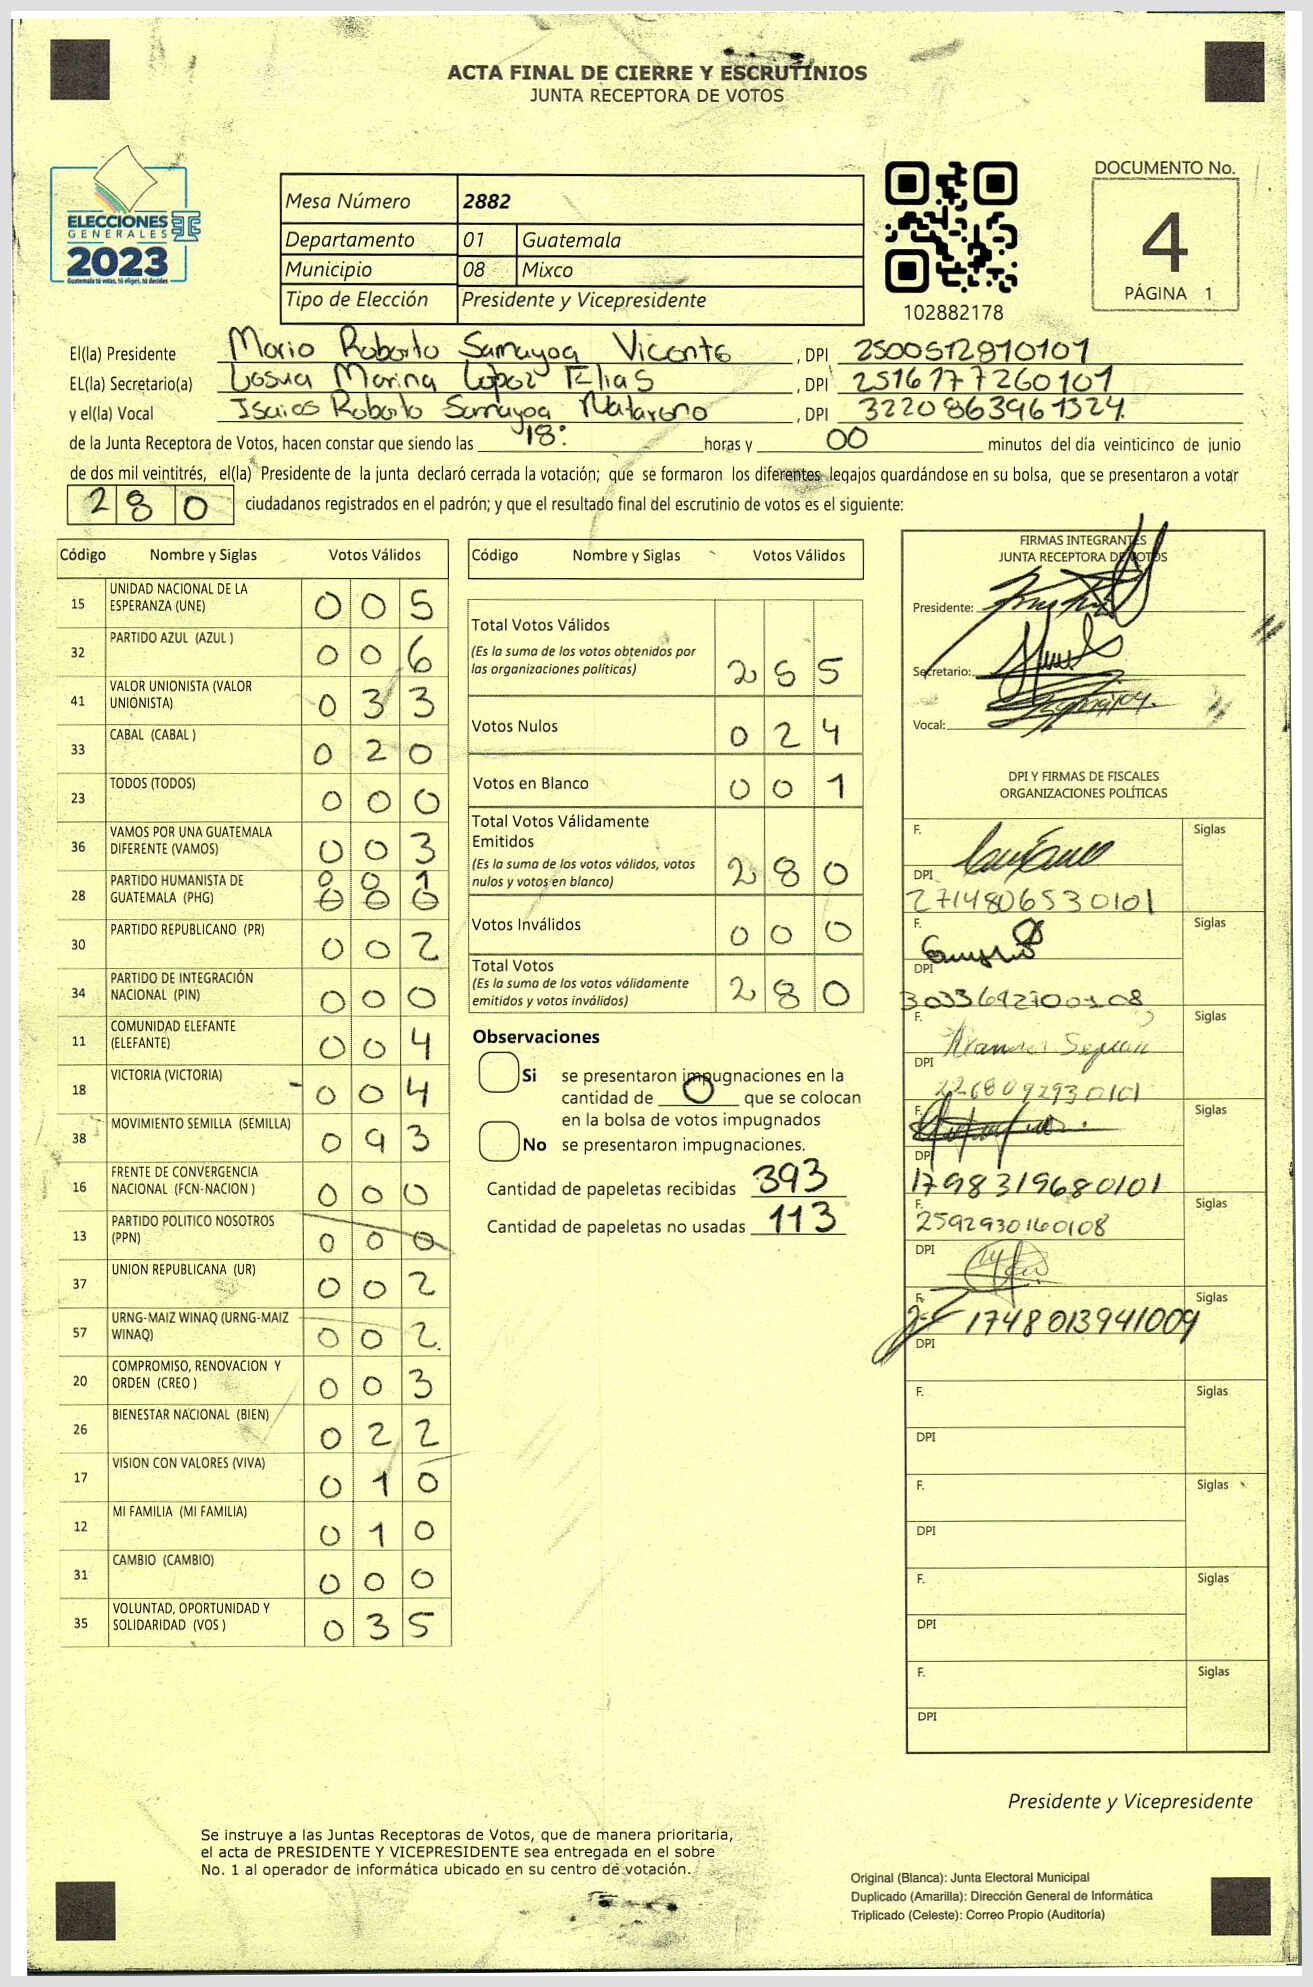 ACTA FINAL DE CIERRE Y ESCRUTINIOS
JUNTA RECEPTORA DE VOTOS
ELECCIONES
GENERALES
2023
Guatemala tú votas, tú eliges, tú decides
Mesa Número 2882
Departamento 01 Guatemala
Municipio 08 Mixco
Tipo de Elección Presidente y Vicepresidente
102882178
DOCUMENTO No.
4
PÁGINA 1
El(la) Presidente Mario Roberto Samayoa Vicente, DPI 2500512810101
EL(la) Secretario(a) Marina Lopez Elias, DPI 2516177260101
y el(la) Vocal Isaias Roberto Samayoa Matareno, DPI 3220863961324
de la Junta Receptora de Votos, hacen constar que siendo las 18: horas y 00 minutos del día veinticinco de junio
de dos mil veintitrés, el(la) Presidente de la junta declaró cerrada la votación; que se formaron los diferentes legajos guardándose en su bolsa, que se presentaron a votar
280 ciudadanos registrados en el padrón; y que el resultado final del escrutinio de votos es el siguiente:
Código Nombre y Siglas Votos Válidos
15 UNIDAD NACIONAL DE LA ESPERANZA (UNE) 005
32 PARTIDO AZUL (AZUL ) 006
41 VALOR UNIONISTA (VALOR UNIONISTA) 033
33 CABAL (CABAL ) 020
23 TODOS (TODOS) 000
36 VAMOS POR UNA GUATEMALA DIFERENTE (VAMOS) 003
28 PARTIDO HUMANISTA DE GUATEMALA (PHG) 001 000
30 PARTIDO REPUBLICANO (PR) 002
34 PARTIDO DE INTEGRACIÓN NACIONAL (PIN) 000
11 COMUNIDAD ELEFANTE (ELEFANTE) 004
18 VICTORIA (VICTORIA) 004
38 MOVIMIENTO SEMILLA (SEMILLA) 093
16 FRENTE DE CONVERGENCIA NACIONAL (FCN-NACION ) 000
13 PARTIDO POLITICO NOSOTROS (PPN) 000
37 UNION REPUBLICANA (UR) 002
57 URNG-MAIZ WINAQ (URNG-MAIZ WINAQ) 002
20 COMPROMISO, RENOVACION Y ORDEN (CREO ) 003
26 BIENESTAR NACIONAL (BIEN) 022
17 VISION CON VALORES (VIVA) 010
12 MI FAMILIA (MI FAMILIA) 010
31 CAMBIO (CAMBIO) 000
35 VOLUNTAD, OPORTUNIDAD Y SOLIDARIDAD (VOS ) 035
Código Nombre y Siglas Votos Válidos
Total Votos Válidos
(Es la suma de los votos obtenidos por
las organizaciones políticas) 255
Votos Nulos 024
Votos en Blanco 001
Total Votos Válidamente
Emitidos
(Es la suma de los votos válidos, votos
nulos y votos en blanco) 280
Votos Inválidos 000
Total Votos
(Es la suma de los votos válidamente
emitidos y votos inválidos) 280
Observaciones
Si se presentaron impugnaciones en la
cantidad de 0 que se colocan
en la bolsa de votos impugnados
No se presentaron impugnaciones.
Cantidad de papeletas recibidas 393
Cantidad de papeletas no usadas 113
FIRMAS INTEGRANTES
JUNTA RECEPTORA DE VOTOS
Presidente:
Secretario:
Vocal:
DPI Y FIRMAS DE FISCALES
ORGANIZACIONES POLÍTICAS
F. Siglas
DPI
2714806530101
F. Siglas
DPI
3033692700108
F. Siglas
DPI
2268092930101
F. Siglas
DPI
1798319680101
F. Siglas
2592930160108
DPI
F. Siglas
1748013941009
DPI
F. Siglas
DPI
F. Siglas
DPI
F. Siglas
DPI
F. Siglas
DPI
Presidente y Vicepresidente
Se instruye a las Juntas Receptoras de Votos, que de manera prioritaria,
el acta de PRESIDENTE Y VICEPRESIDENTE sea entregada en el sobre
No. 1 al operador de informática ubicado en su centro de votación.
Original (Blanca): Junta Electoral Municipal
Duplicado (Amarilla): Dirección General de Informática
Triplicado (Celeste): Correo Propio (Auditoría)